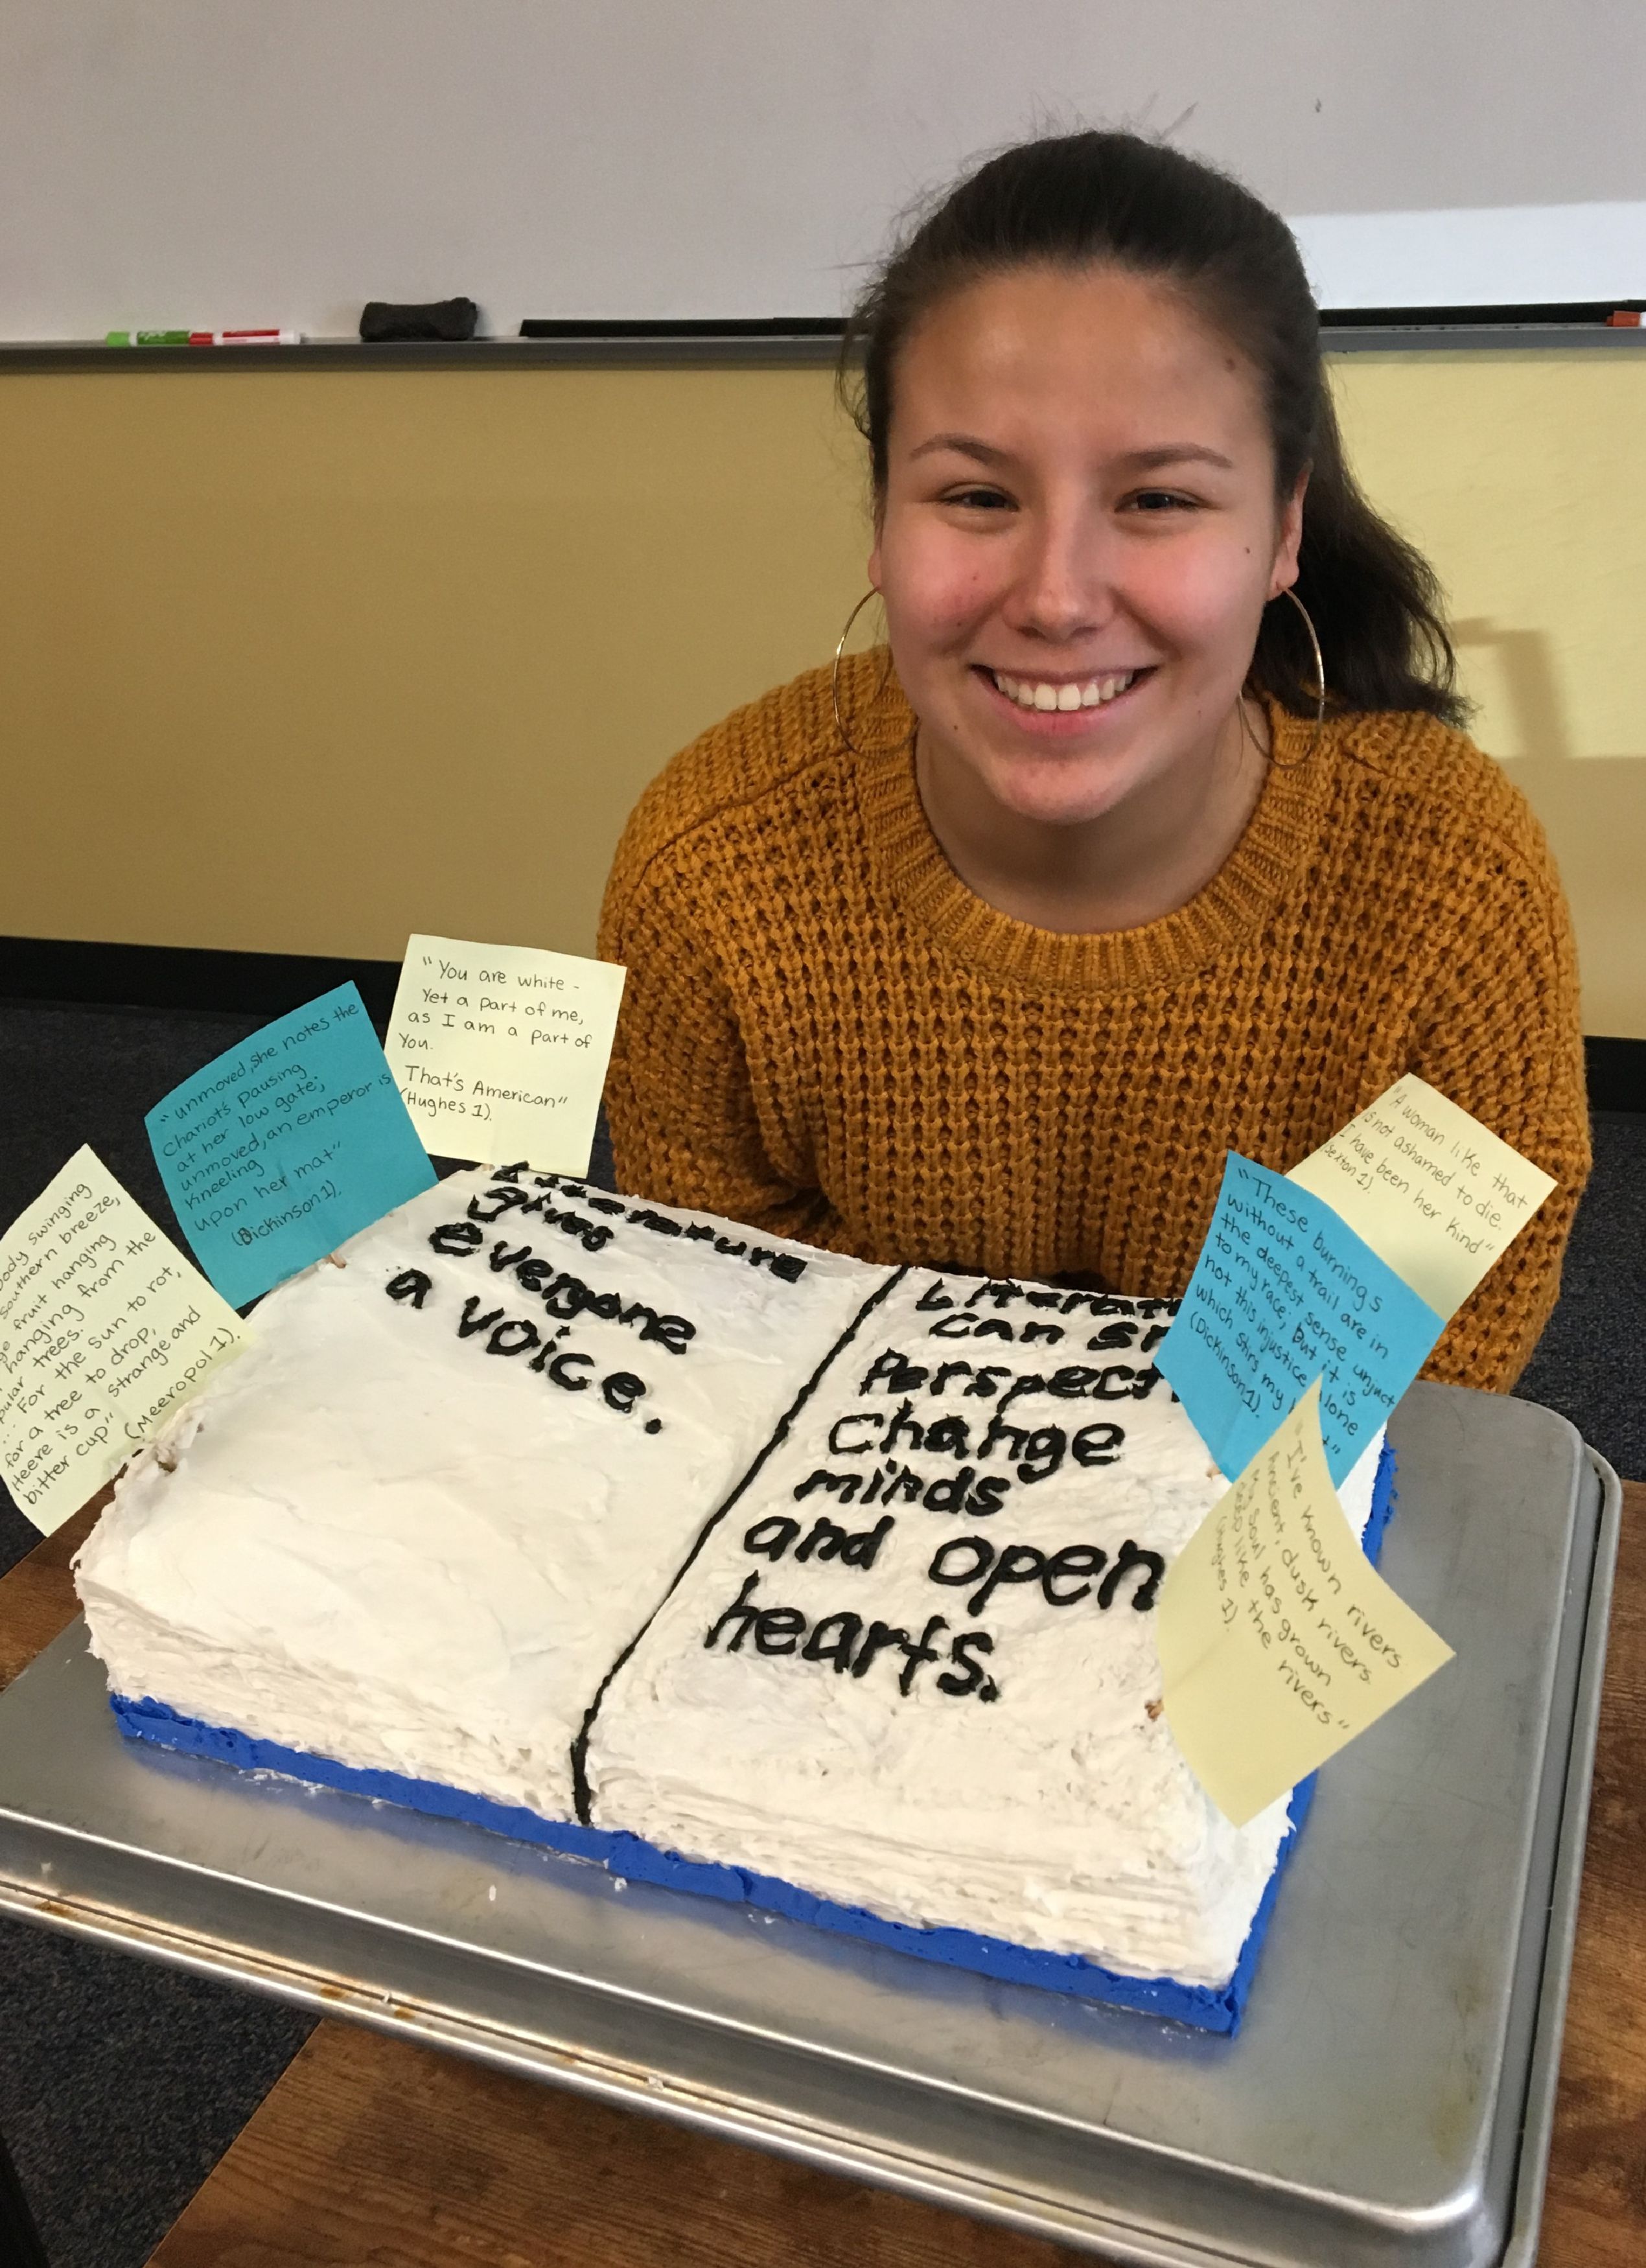 "You are white -
Yet a part of me,
as I am a part of
You.
That's American"
(Hughes 1).
"unmoved, she notes the
Chariot's pausing
at her low gate;
unmoved, an emperor is
Kneeling
upon her mat"
(Dickinson 1).
body swinging
Southern breeze,
fruit hanging
hanging from the
trees.
... For the sun to rot,
for a tree to drop,
Heere is a strange and
bitter cup"
(Meeropol 1).
Literature
gives
everyone
a voice.
Literat
can
Perspect
Change
minds
and open
hearts.
"A woman like that
is not ashamed to die.
I have been her kind"
(Sexton 1).
"These burnings
without a trail are in
the deepest sense unjuct
to my race, but it is
not this injustice alone
which stirs my
(Dickinson 1).
"I've known rivers
Ancient, dusk rivers
My Soul has grown
deep like the rivers"
(Hughes 1).